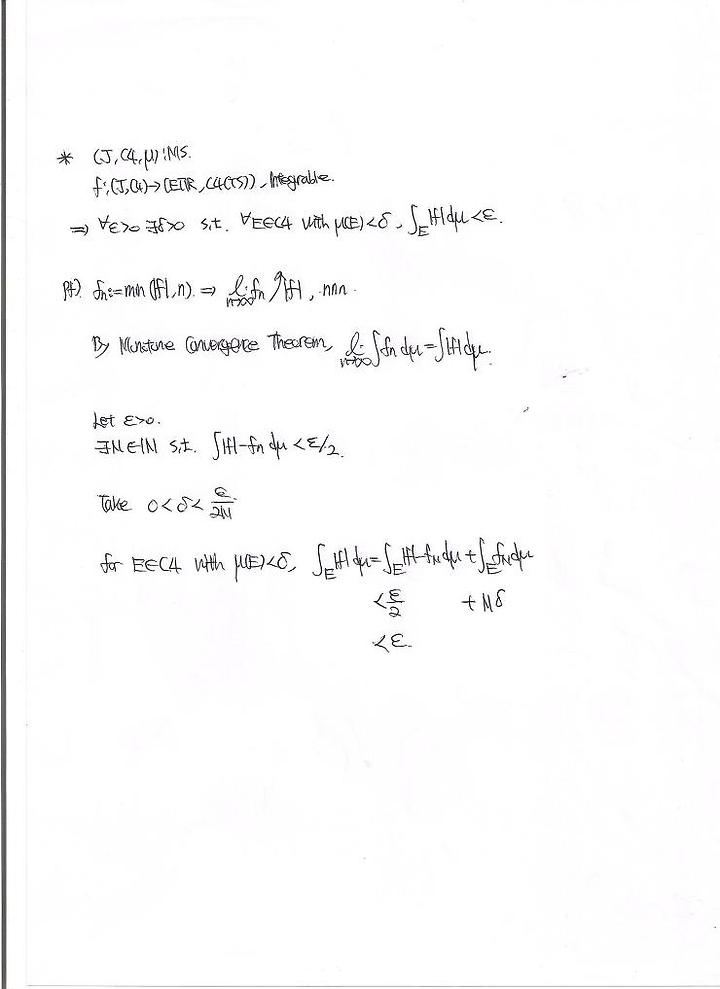 * (J, C4, μ) : MS.
f : (J, C4) → (EIR, C4(TS)), Integrable.
⇒ ∀ε>0 ∃δ>0 s.t. ∀E∈C4 with μ(E)<δ, ∫_E |f| dμ < ε.
pf) fn := min(|f|, n). ⇒ lim_{n→∞} fn ↗ |f|, nnn.
By Monotone Convergence Theorem, lim_{n→∞} ∫fn dμ = ∫|f| dμ.
Let ε>0.
∃N∈IN s.t. ∫|f|-fn dμ < ε/2.
Take 0<δ< ε/2N
for E∈C4 with μ(E)<δ, ∫_E |f| dμ = ∫_E |f|-fN dμ + ∫_E fN dμ
< ε/2 + Nδ
< ε.